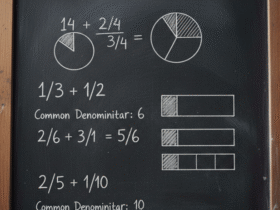 14 + 2/4
3/4 =
1/3 + 1/2
Common Denominitar: 6
2/6 + 3/1 = 5/6
2/5 + 1/10
Common Denominitar: 10